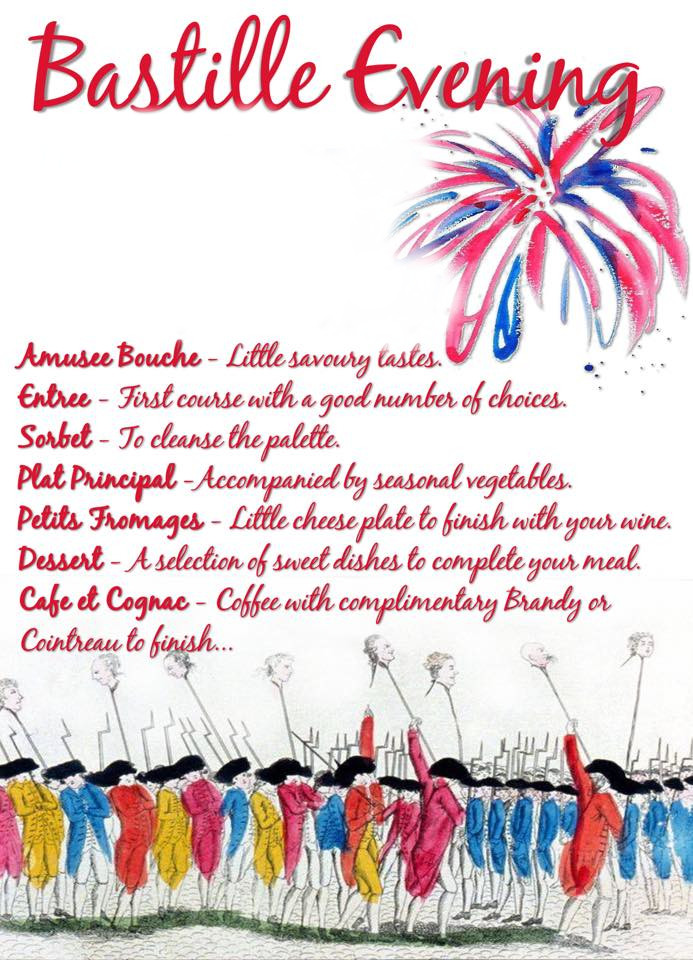 Bastille Evening
Amusee Bouche - Little savoury tastes.
Entree - First course with a good number of choices.
Sorbet - To cleanse the palette.
Plat Principal -Accompanied by seasonal vegetables.
Petits Fromages - Little cheese plate to finish with your wine.
Dessert - A selection of sweet dishes to complete your meal.
Cafe et Cognac - Coffee with complimentary Brandy or
Cointreau to finish...